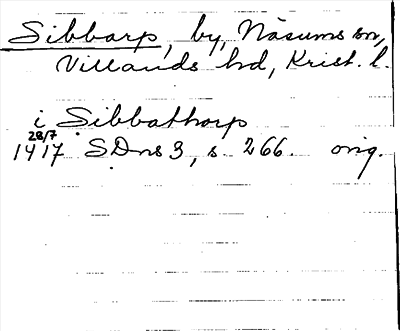 Sibbarp, by, Näsums sn,
Villands hd, Krist. l.
i Sibbathorp
28/7
1417 SDns 3, s. 266. orig.